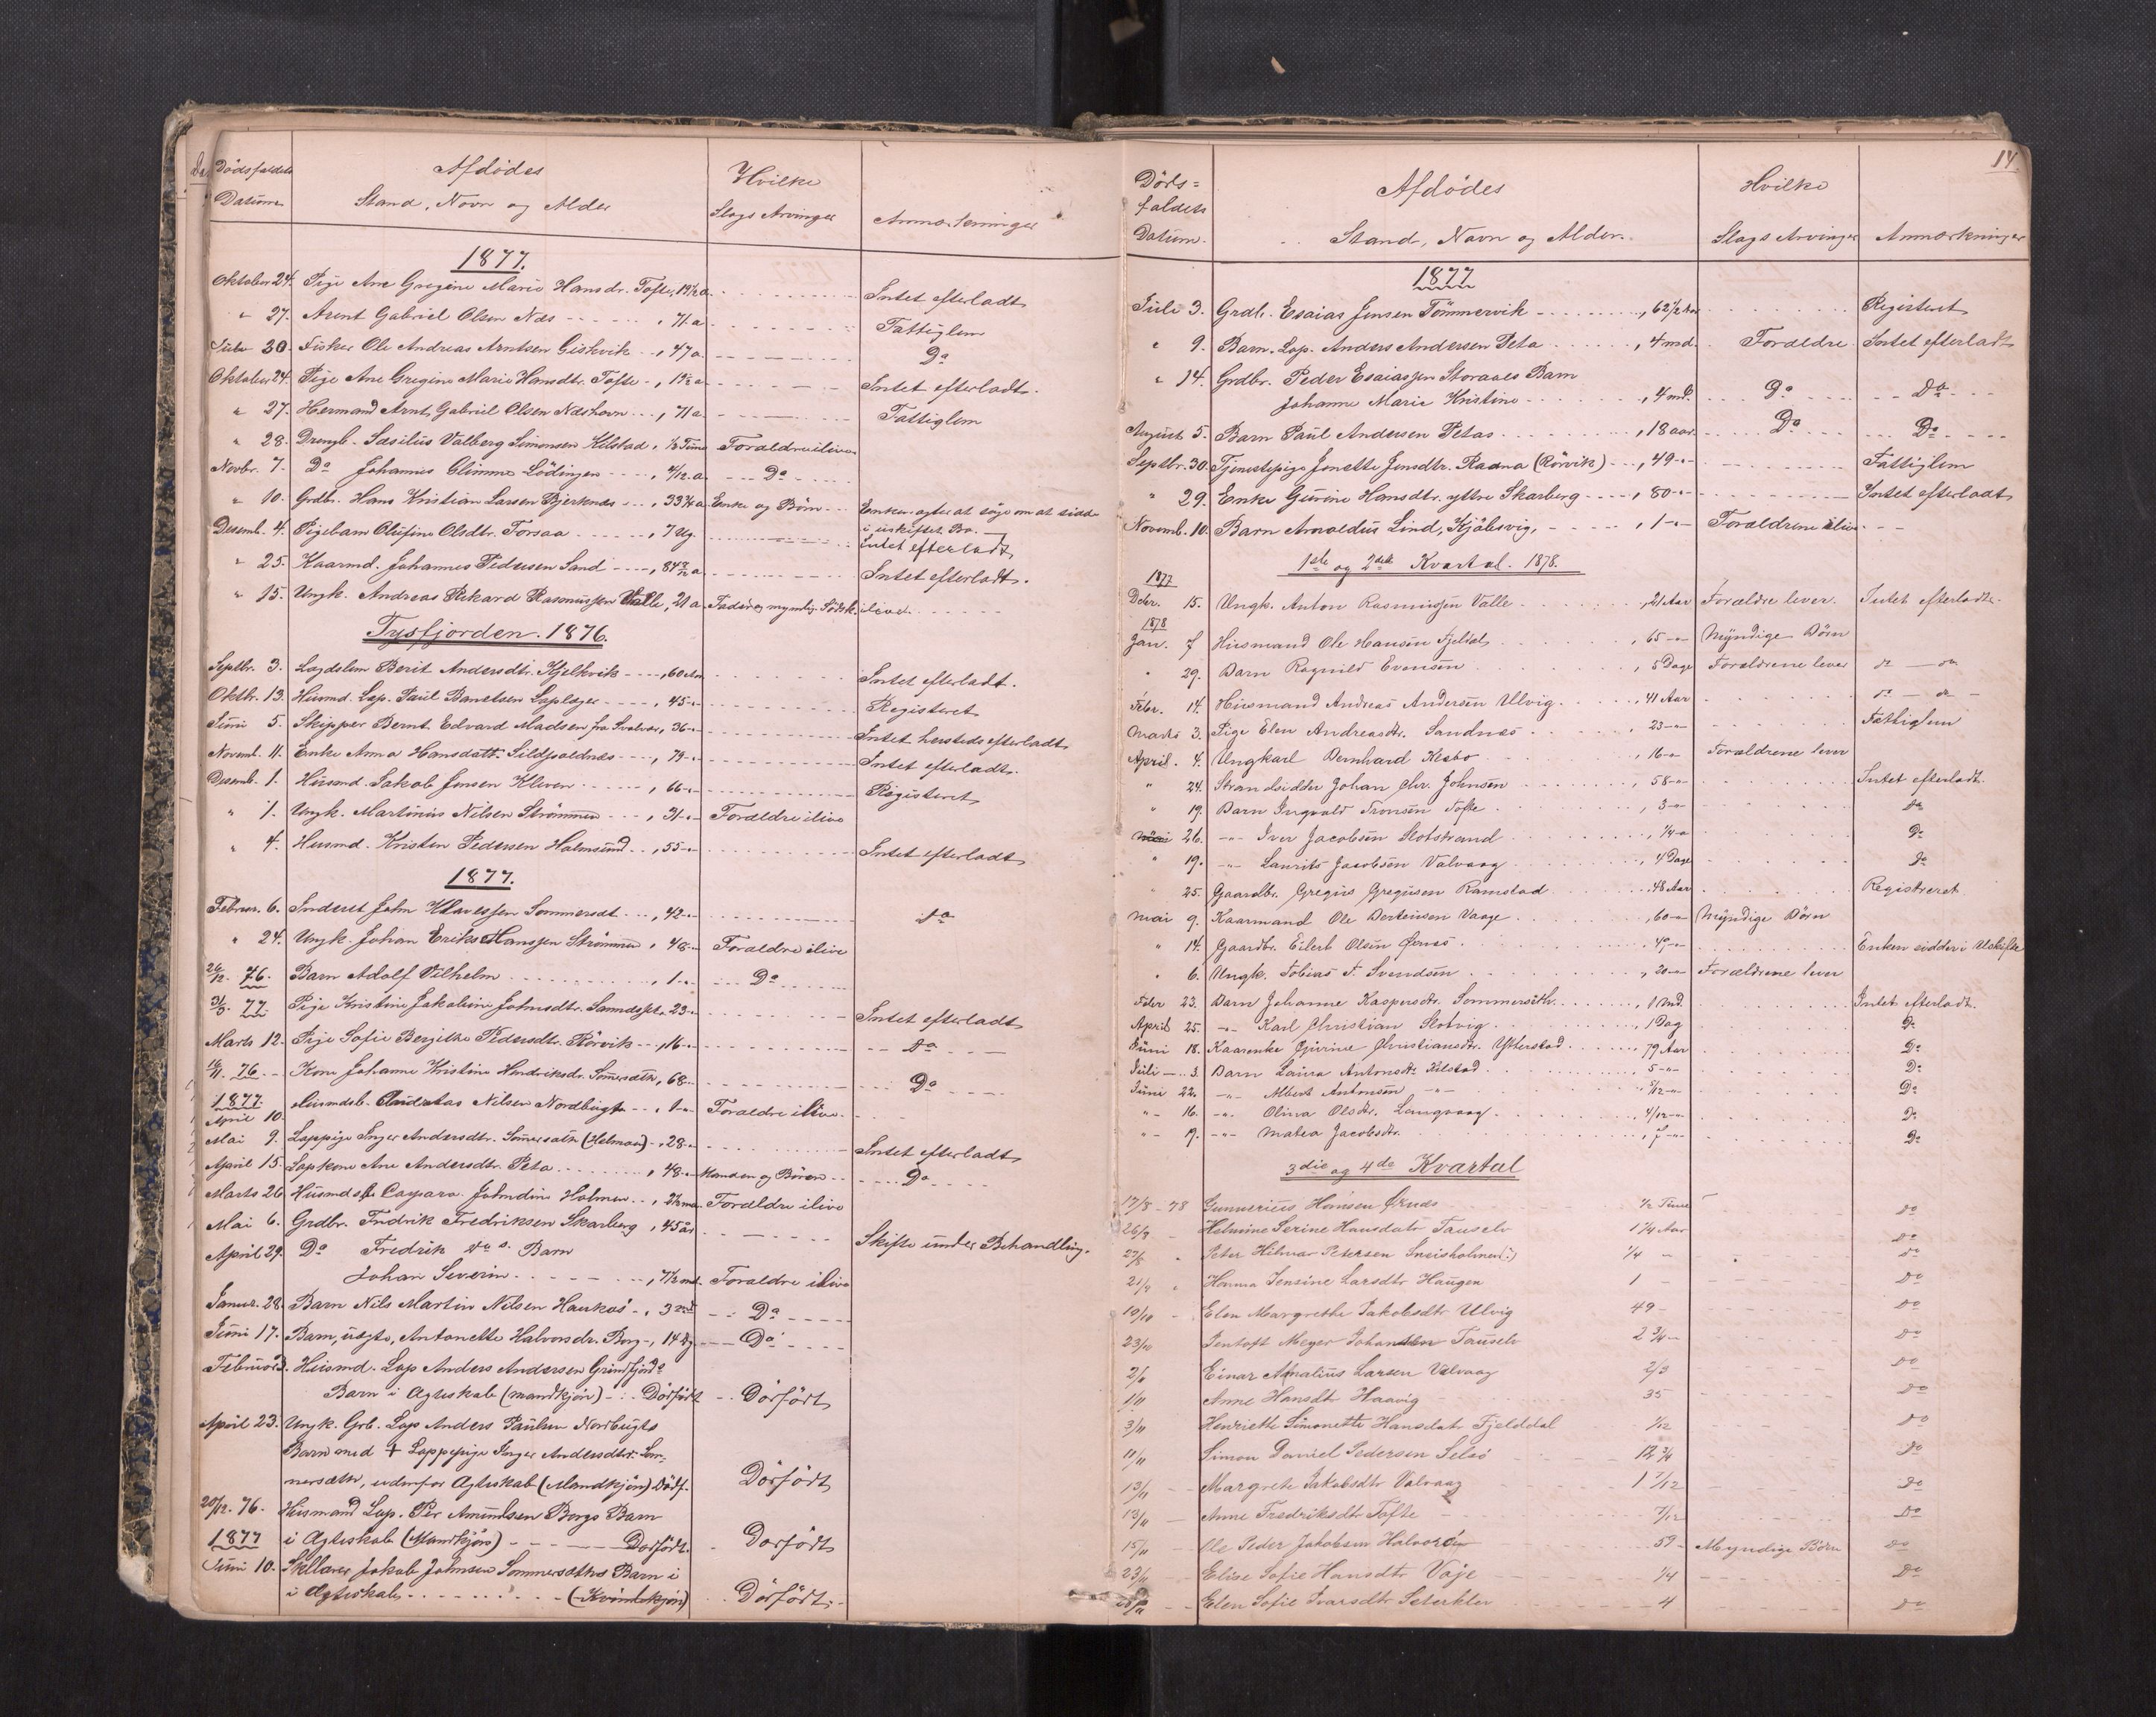 Dødsfaldets Datum Afdødes Stand, Navn og Alder Hvilke Slags Arvinger Anmærkninger
1877.
Oktober 24. Pige Ane Gregine Marie Hansdr. Tofte, 19½ a. Intet efterladt
" 27. Arent Gabriel Olsen Næs , 71 a Fattiglem
30. Fisker Ole Andreas Arntsen Giskvik , 47 a. Do
Oktober 24. Pige Ane Gregine Marie Hansdtr. Tofte , 19½ a Intet efterladt.
" 27. Hermand Arnt Gabriel Olsen Næshavn , 71 a Fattiglem
" 28. Drengb. Sæsilius Valberg Simonsen Kilstad , ½ Time Forældre ilive
Novbr. 7. Do Johannes Glimme Lödingen a. Do
" 10. Grdbr. Hans Kristian Larsen Bjerknæs , 33¾ a Enke og Börn Enken agter at söge om at sidde
i uskiftet Bo.
Desemb. 4. Pigebarn Olufine Olsdtr. Forsaa , 7 Ug. Intet efterladt
" 25. Kaarmd. Johannes Pedersen Sand , 84 a Intet efterladt.
" 15. Ungk. Andreas Rikard Rasmussen Valle, 21 a. Fader og myndig Södsk. ilive
Tysfjorden. 1876.
Septbr. 3. Lægdslem Berit Andersdtr. Kjelkvik , 60 Aar Intet efterladt.
Oktbr. 13. Husmd. Lap. Paul Banetsen Saplæger , 45 Registeret
Juni 5. Skipper Bernt Edvard Madsen fra Svolvær, 36 Intet hersteds efterladt
Novemb. 11. Enke Anna Hansdatt. Sildpoldnæs , 79 Intet efterladt.
Desemb. 1. Husmd. Jakob Jensen Kleven , 66 Registeret
" 1. Ungk. Martinus Nilsen Strömmen , 31 Forældre ilive
" 4. Husmd. Kristen Pedersen Holmsund , 55 Intet efterladt
1877.
Februar. 6. Inderst John Klavessen Sommersæt , 42 do
" 24. Ungk. Johan Eriks Hanssen Strömmen , 48 Forældre ilive
26/12. 76. Barn Adolf Vilhelm , 1 Do
31/3. 77. Pige Kristine Jakobine Johnsdtr. 23 Intet efterladt
Marts 12. Pige Sofie Bergithe Pedersdtr. Rörvik , 16 do
76. Kone Johanne Kristine Hendriksdr. Somersæth, 68 Do
1877.
April 10. Husmdsb. Andreas Nilsen Nordbugt , 1 Forældre ilive.
Mai 9. Lappige Inger Andersdtr. Somersæth (Helmoen) , 28 Intet efterladt
April 15. Lapkone Ane Andersdtr. Peta , 48 Manden og Börn Do
Marts 26. Husmdsb. Caspara Johndine Holmen , 2½ md. Forældre ilive
Mai 6. Grdbr. Fredrik Fredriksen Skarberg , 45 år Skifte under Behandling.
April 29. Do Fredrik do s. Barn
Johan Severin , 7½ md. Forældre ilive
Januar. 28. Barn Nils Martin Nilsen Haukøs , 3 Do
Juni 17. Barn, uægte, Antonette Halvorsdr. Borg , 14 Dg Do
Februar 3. Husmd. Lap Anders Andersen Grundfjord
Barn i Ægteskab (mandkjön) Dödfödt Dödfödt
April 23. Ungk. Grb. Lap Anders Paulsen Norbugts
Barn med Lappepige Inger Andersdtr. Som-
mersæth, udenfor Ægteskab (Mandkjön) Dödf. Dödfödt
20/12. 76. Husmand Lap. Per Amundsen Borgs Barn
1877 i Ægteskab (Mandkjön) Dödfödt. Dödfödt
Juni 10. Jakob Johnsen Sommersæths Barn i
i Ægteskab (Kvindekjön) Dödfödt.
14.
Døds=
faldets
Datum. Afdødes Stand, Navn og Alder. Hvilke Slags Arvinger Anmærkninger
1877
Juli 3. Grdb. Esaias Jensen Tömmervik , 62½ Aar Registeret
" 9. Barn. Lap. Anders Andersen Peta , 4 md. Forældre Intet efterladt
" 14. Grdbr. Peder Esaiassen Storaaes Barn
Johanne Marie Kristine , 4 md. Do Do
August 5. Barn Paul Andersen Petas , 18 aar. Do Do
Septbr. 30. Tjenestepige Jonette Jensdtr. Raana (Rörvik) , 49 Fattiglem
" 29. Enke Gurine Hansdtr. yttre Skarberg , 80 Intet efterladt
Novemb. 10. Barn Arnoldus Lind, Kjöbsvig, , 1 Forældrene ilive
1ste og 2det Kvartal. 1878.
1877
Deber. 15. Ungk. Anton Rasmussen Valle , 21 Aar Forældre lever. Intet efterladte.
1878
Jan. 7 Husmand Ole Hansen Fjeldal , 65 Myndige Börn
" 29. Barn Ragnild Evensen , 5 Dage Forældrene lever do
Febr. 14. Husmand Andreas Andersen Ulvig , 41 Aar do
Marts 3. Pige Elen Andreasdtr. Sandnes , 23 Fattiglem
April. 4. Ungkarl Bernhard Klebo , 16 Forældrene lever
" 24. Strandsidder Johan Chr. Johnsen , 58 Intet efterladt
" 19. Barn Ingvald Tronsen Tofte , 3 do
26. Iver Jacobsen Slotstrand , ¼ Do
" 19. Laurits Jacobsen Valvaag , 4 Dage Do
" 25. Gaardbr. Gregus Gregusen Ramstad , 48 Aar Registreret
Mai 9. Kaarmand Ole Berteusen Vaage , 60 Myndige Börn
" 14. Gaardbr. Eilert Olsen Ørnes , 49 Enken sidder i Uskifte
" 6. Ungk. Tobias F. Svendsen , 20 Forældrene lever
Feber 23. Barn Johanne Kaspersdtr. Sommersæth. , 1 Md. Intet efterladt.
April 25. Karl Christian Slotvig , 1 Dag Do
Juni 18. Kaarenke Gjurine Christiansdtr. Ytterstad 79 Aar Do
Juli 3. Barn Laura Antonsdtr. Kilstad 5 Do
Juni 22. Albert Antonsen 5/12 Do
" 16. Olina Olsdtr. Langvaag 4/12 Do
" 19. Matea Jacobsdtr. , 7 Do
3die og 4de Kvartal
17/8 - 78 Gunnerius Hansen Ørnæs ½ Time do
26/9 Helmine Serine Hansdatr Tauselv 1¼ Aar do
27/8 Peter Hilmar Petersen Sneisholmen (:) ¼ do
21/9 Hanna Jensine Larsdtr Haugen 1 do
19/10 Elen Margrethe Jakobsdtr Ulvig 49 do
23/10 Pentoft Meyer Tauselv 2¾ do
Einar Amatius Larsen Valvaag 2/3 do
1/11 Anne Hansdtr Haavig 35 do
3/11 Henriette Simonette Hansdatr Fjelddal 1/12 do
11/11 Simon Daniel Pedersen Selsö 12¾ do
13/11 Margrete Jakobsdtr Valvaag 1 7/12 do
13/11 Anne Fredriksdtr Tofte 7/12 do
15/11 Ole Peder Jakobsen Halvorö 59 Myndige Börn do
23/11 Elise Sofie Hansdtr Vaje ¼ Do
Elen Sofie Ivarsdtr 4 do